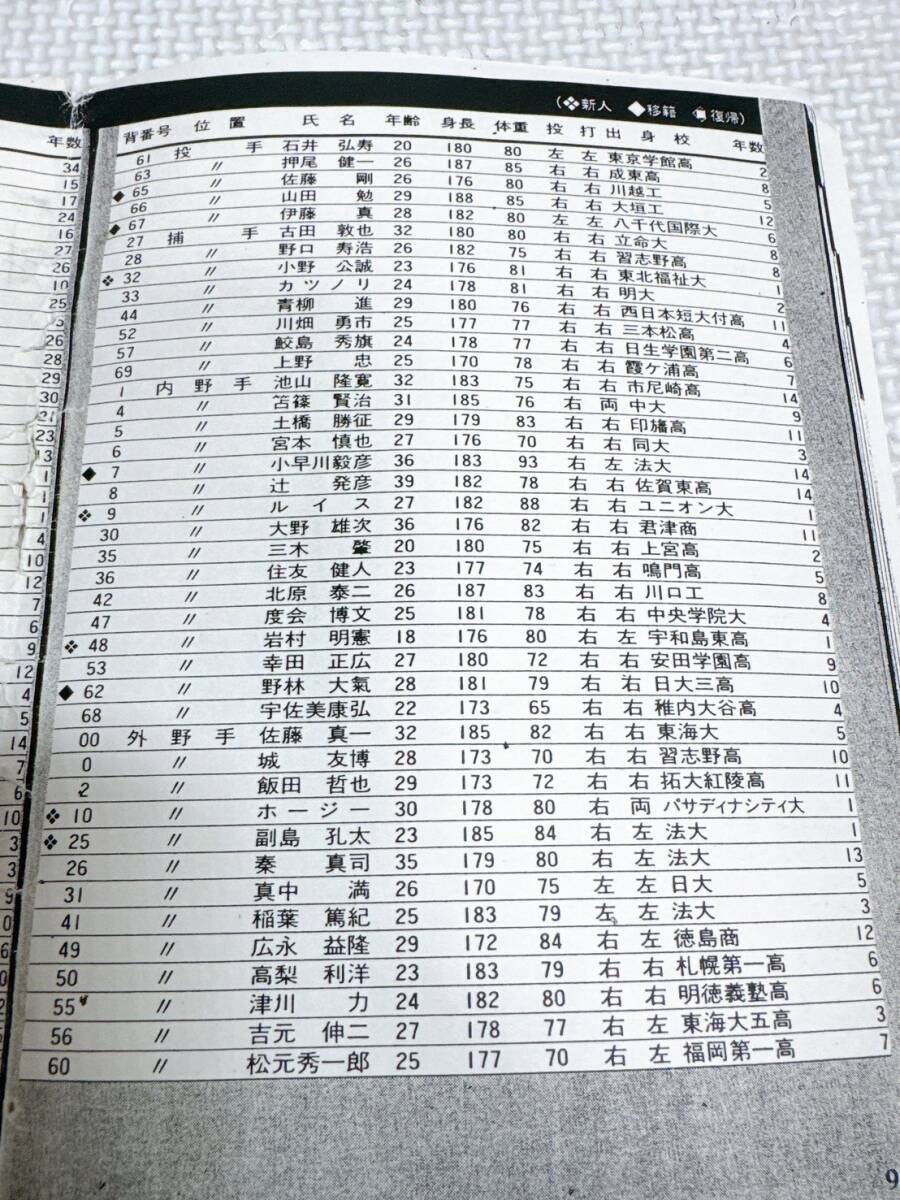 (❖新人 ◆移籍 復帰)
年数 背番号 位置 氏名 年齢 身長 体重 投 打 出身校 年数
34 61 投手 石井弘寿 20 180 80 左 左 東京学館高 2
15 63 〃 押尾健一 26 187 85 右 右 成東高 8
17 ◆65 〃 佐藤剛 26 176 80 右 右 川越工 5
24 66 〃 山田勉 29 188 85 右 右 大垣工 12
16 ◆67 〃 伊藤真 28 182 80 左 左 八千代国際大 6
27 27 捕手 古田敦也 32 180 80 右 右 立命大 8
26 28 〃 野口寿浩 26 182 75 右 右 習志野高 8
10 ❖32 〃 小野公誠 23 176 81 右 右 東北福祉大 1
25 33 〃 カツノリ 24 178 81 右 右 明大 2
44 〃 青柳進 29 180 76 右 右 西日本短大付高 11
26 52 〃 川畑勇市 25 177 77 右 右 三本松高 4
28 57 〃 鮫島秀旗 24 178 77 右 右 日生学園第二高 6
29 69 〃 上野忠 25 170 78 右 右 霞ケ浦高 7
30 1 内野手 池山隆寛 32 183 75 右 右 市尼崎高 14
21 4 〃 笘篠賢治 31 185 76 右 両 中大 9
23 5 〃 土橋勝征 29 179 83 右 右 印旛高 11
3 6 〃 宮本慎也 27 176 70 右 右 同大 3
1 ◆7 〃 小早川毅彦 36 183 93 右 左 法大 14
1 8 〃 辻発彦 39 182 78 右 右 佐賀東高 14
1 ❖9 〃 ルイス 27 182 88 右 右 ユニオン大 1
4 30 〃 大野雄次 36 176 82 右 右 君津商 11
10 35 〃 三木肇 20 180 75 右 右 上宮高 2
12 36 〃 住友健人 23 177 74 右 右 鳴門高 5
7 42 〃 北原泰二 26 187 83 右 右 川口工 8
6 47 〃 度会博文 25 181 78 右 右 中央学院大 4
9 ❖48 〃 岩村明憲 18 176 80 右 左 宇和島東高 1
12 53 〃 幸田正広 27 180 72 右 右 安田学園高 9
4 ◆62 〃 野林大氣 28 181 79 右 右 日大三高 10
5 68 〃 宇佐美康弘 22 173 65 右 右 稚内大谷高 4
14 00 外野手 佐藤真一 32 185 82 右 右 東海大 5
7 0 〃 城友博 28 173 70 右 右 習志野高 10
6 2 〃 飯田哲也 29 173 72 右 右 拓大紅陵高 11
10 ❖10 〃 ホージー 30 178 80 右 両 パサディナシティ大 1
3 ❖25 〃 副島孔太 23 185 84 右 左 法大 1
3 26 〃 秦真司 35 179 80 右 左 法大 13
31 〃 真中満 26 170 75 左 左 日大 5
41 〃 稲葉篤紀 25 183 79 左 左 法大 3
49 〃 広永益隆 29 172 84 右 左 徳島商 12
50 〃 高梨利洋 23 183 79 右 右 札幌第一高 6
55 〃 津川力 24 182 80 右 右 明徳義塾高 6
56 〃 吉元伸二 27 178 77 右 左 東海大五高 3
60 〃 松元秀一郎 25 177 70 右 左 福岡第一高 7
9